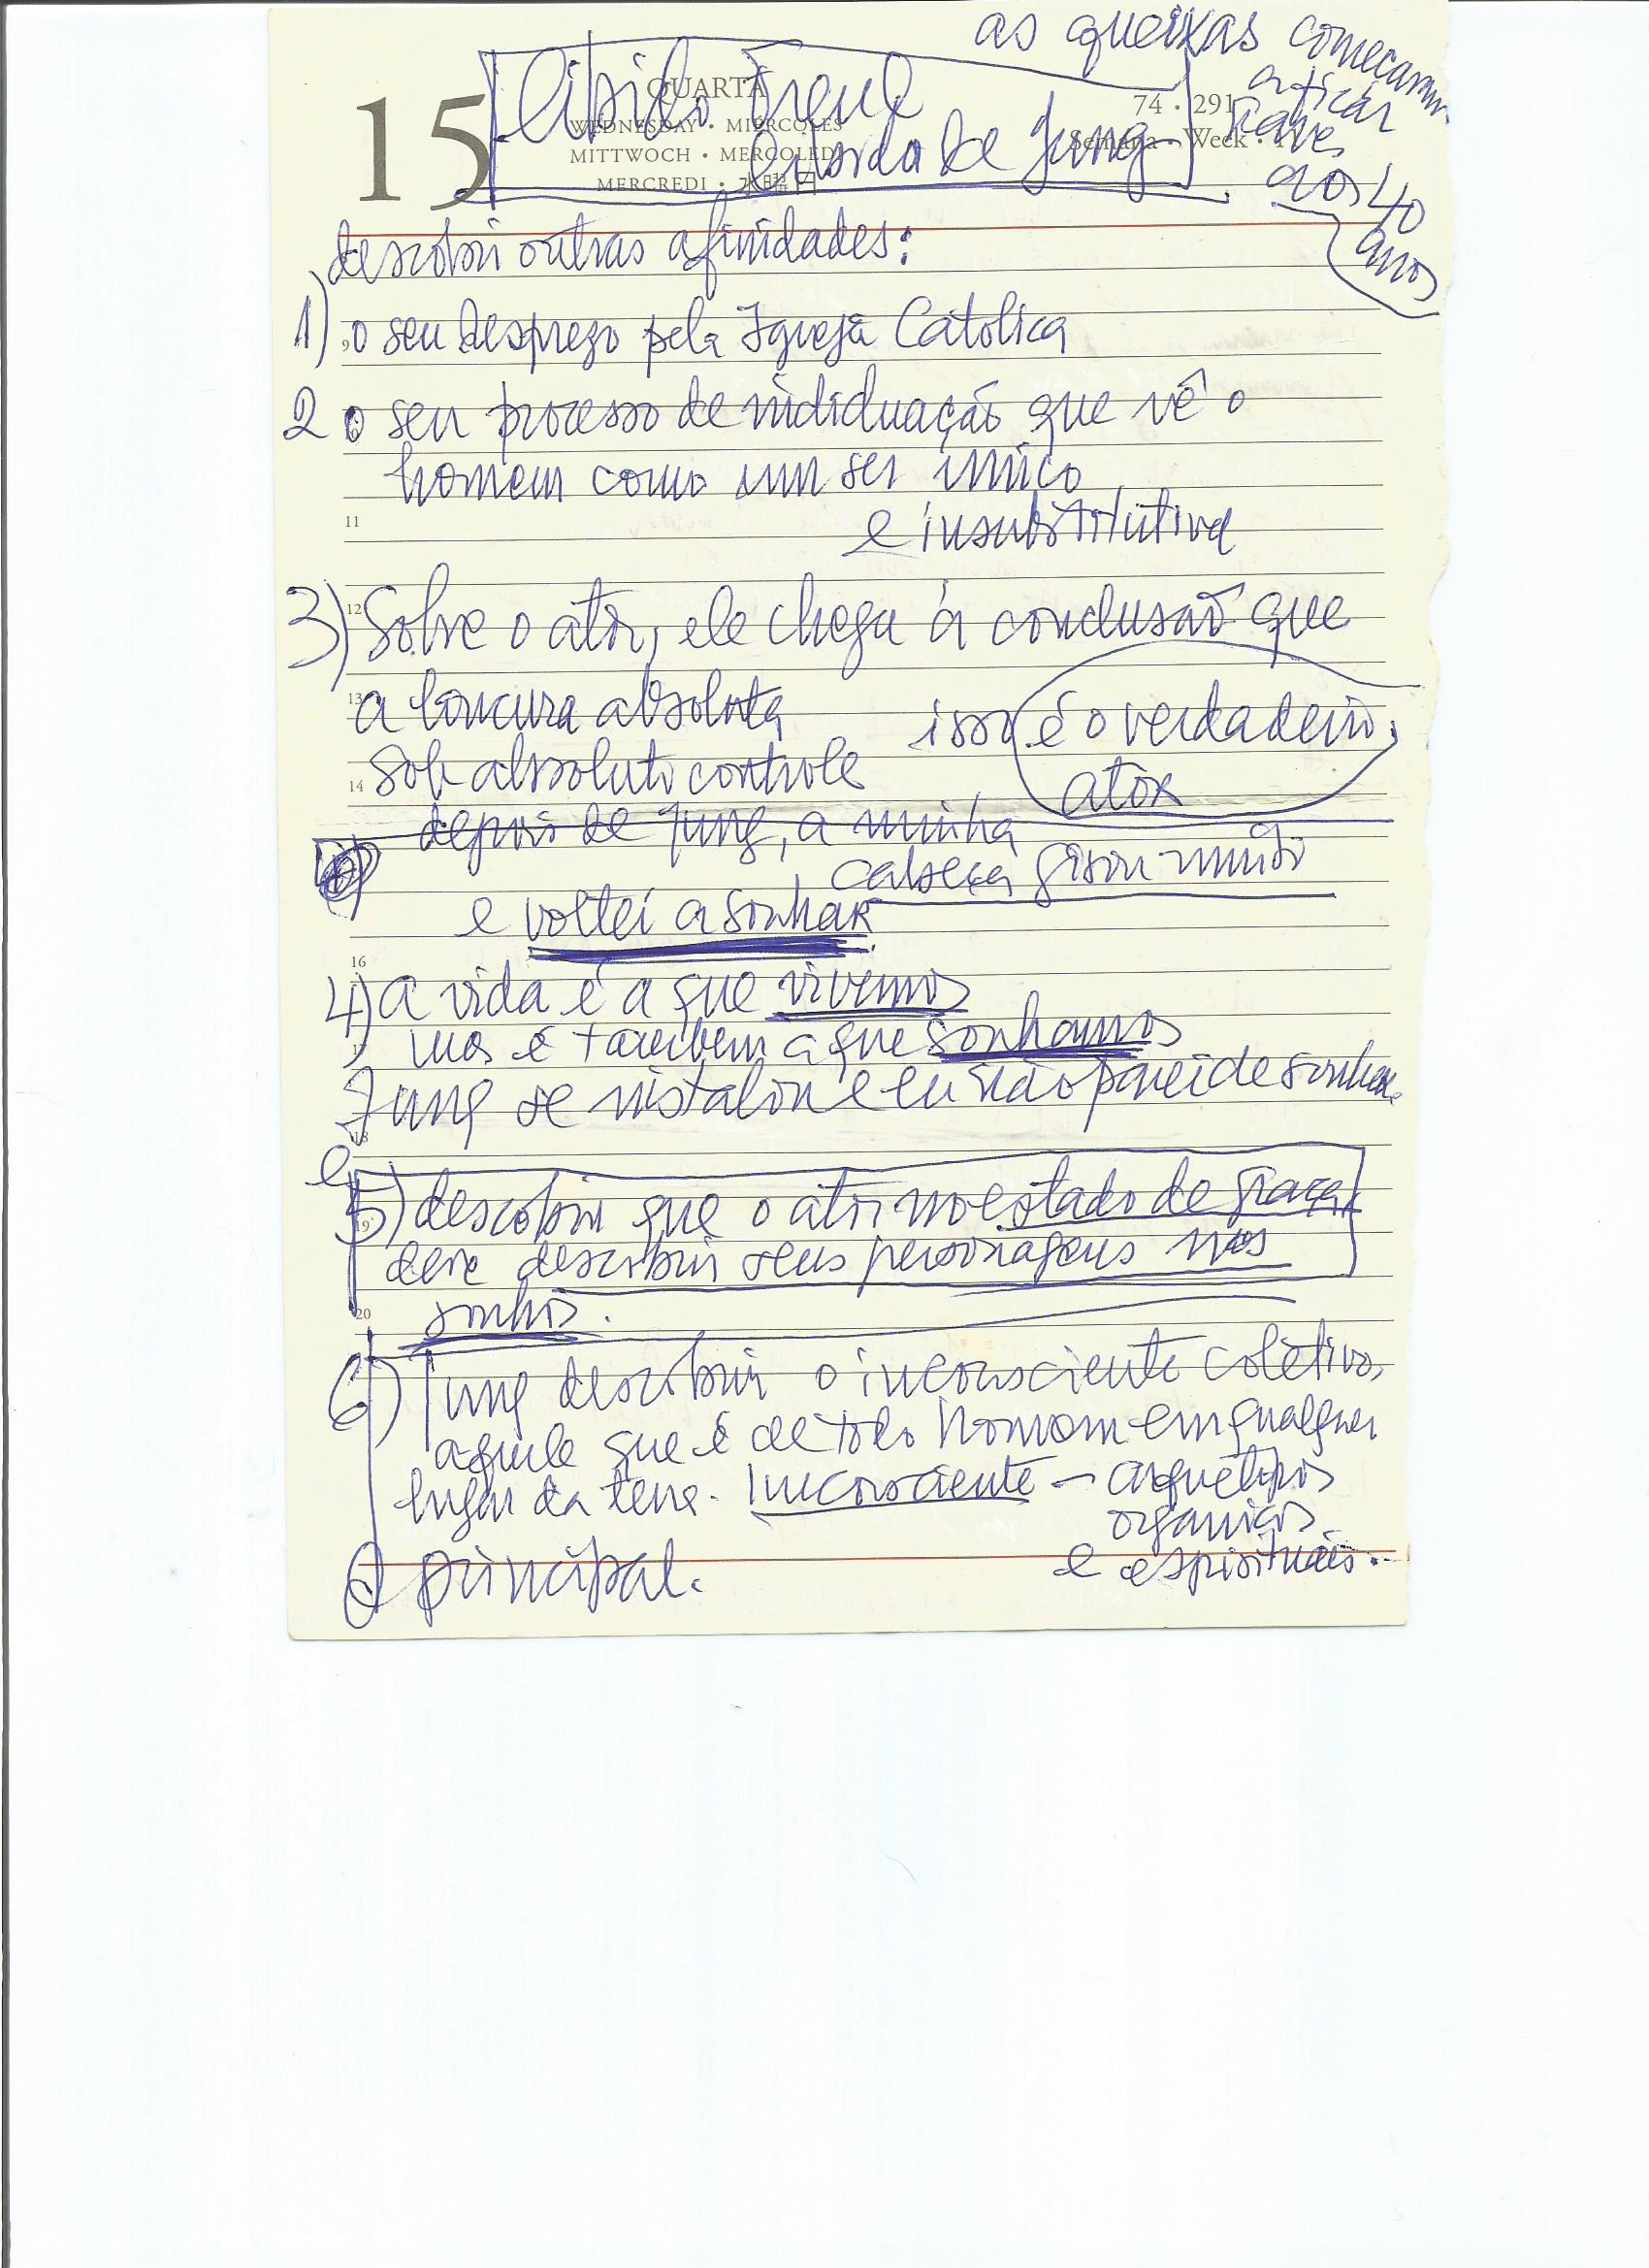 as queixas começaram
a ficar
graves
aos 40
anos
15
QUARTA
WEDNESDAY • MIÉRCOLES
MITTWOCH • MERCOLEDI
MERCREDI • 水曜日
74 • 291
Semana • Week •
Libido Freud
e de Jung
descobri outras afinidades:
1) o seu desprezo pela Igreja Católica
2 o seu processo de individuação que vê o
homem como um ser único
e insubstitutivel
11
3) 12 Sobre o ator, ele chega à conclusão que
13 a loucura absoluta isso é o verdadeiro
14 sob absoluto controle ator
depois de Jung, a minha
cabeça girou muito
e voltei a sonhar
16
4) a vida é a que vivemos
mas é também a que sonhamos
Jung se instalou e eu não parei de sonhar.
18
e
5) descobri que o ator no estado de graça
19
deve descobrir seus personagens nos
20
sonhos.
6) Jung descobriu o inconsciente coletivo,
aquele que é de todo homem em qualquer
lugar da terra. Inconsciente — arquétipos
orgânicos
e espirituais..
O principal.